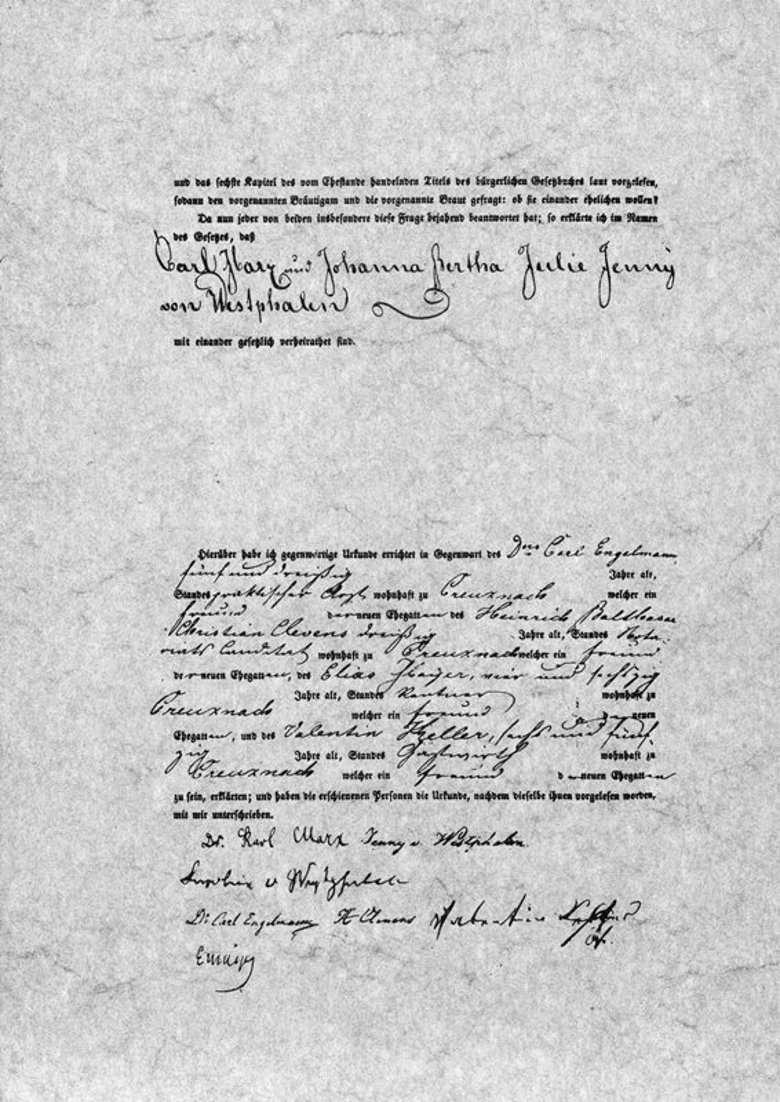 und das sechste Kapitel des vom Ehestande handelnden Titels des bürgerlichen Gesetzbuches laut vorgelesen,
sodann den vorgenannten Bräutigam und die vorgenannte Braut gefragt: ob sie einander ehelichen wollen?
Da nun jeder von beiden insbesondere diese Frage bejahend beantwortet hat; so erklärte ich im Namen
des Gesetzes, daß
Carl Marx und Johanna Bertha Julie Jenny
von Westphalen
mit einander gesetzlich verheirathet sind.
Hierüber habe ich gegenwärtige Urkunde errichtet in Gegenwart des Carl Engelmann,
fünf und dreißig Jahre alt,
Standes praktischer Arzt wohnhaft zu Creuznach welcher ein
Freund der neuen Ehegatten des Heinrich Balthasar
Christian Clevens dreißig Jahre alt, Standes Nota-
riats Candidat wohnhaft zu Creuznach welcher ein Freund
der neuen Ehegatten, des Elias Mayer, vier und sechszig
Jahre alt, Standes Rentner wohnhaft zu
Creuznach welcher ein Freund der neuen
Ehegatten, und des Valentin Keller, sechs und fünf-
zig Jahre alt, Standes Gastwirth wohnhaft zu
Creuznach welcher ein Freund der neuen Ehegatten
zu sein, erklärten; und haben die erschienenen Personen die Urkunde, nachdem dieselbe ihnen vorgelesen worden,
mit mir unterschrieben.
Dr. Karl Marx Jenny v. Westphalen.
v Westphalen
Dr Carl Engelmann H Clevens Valentin Keller